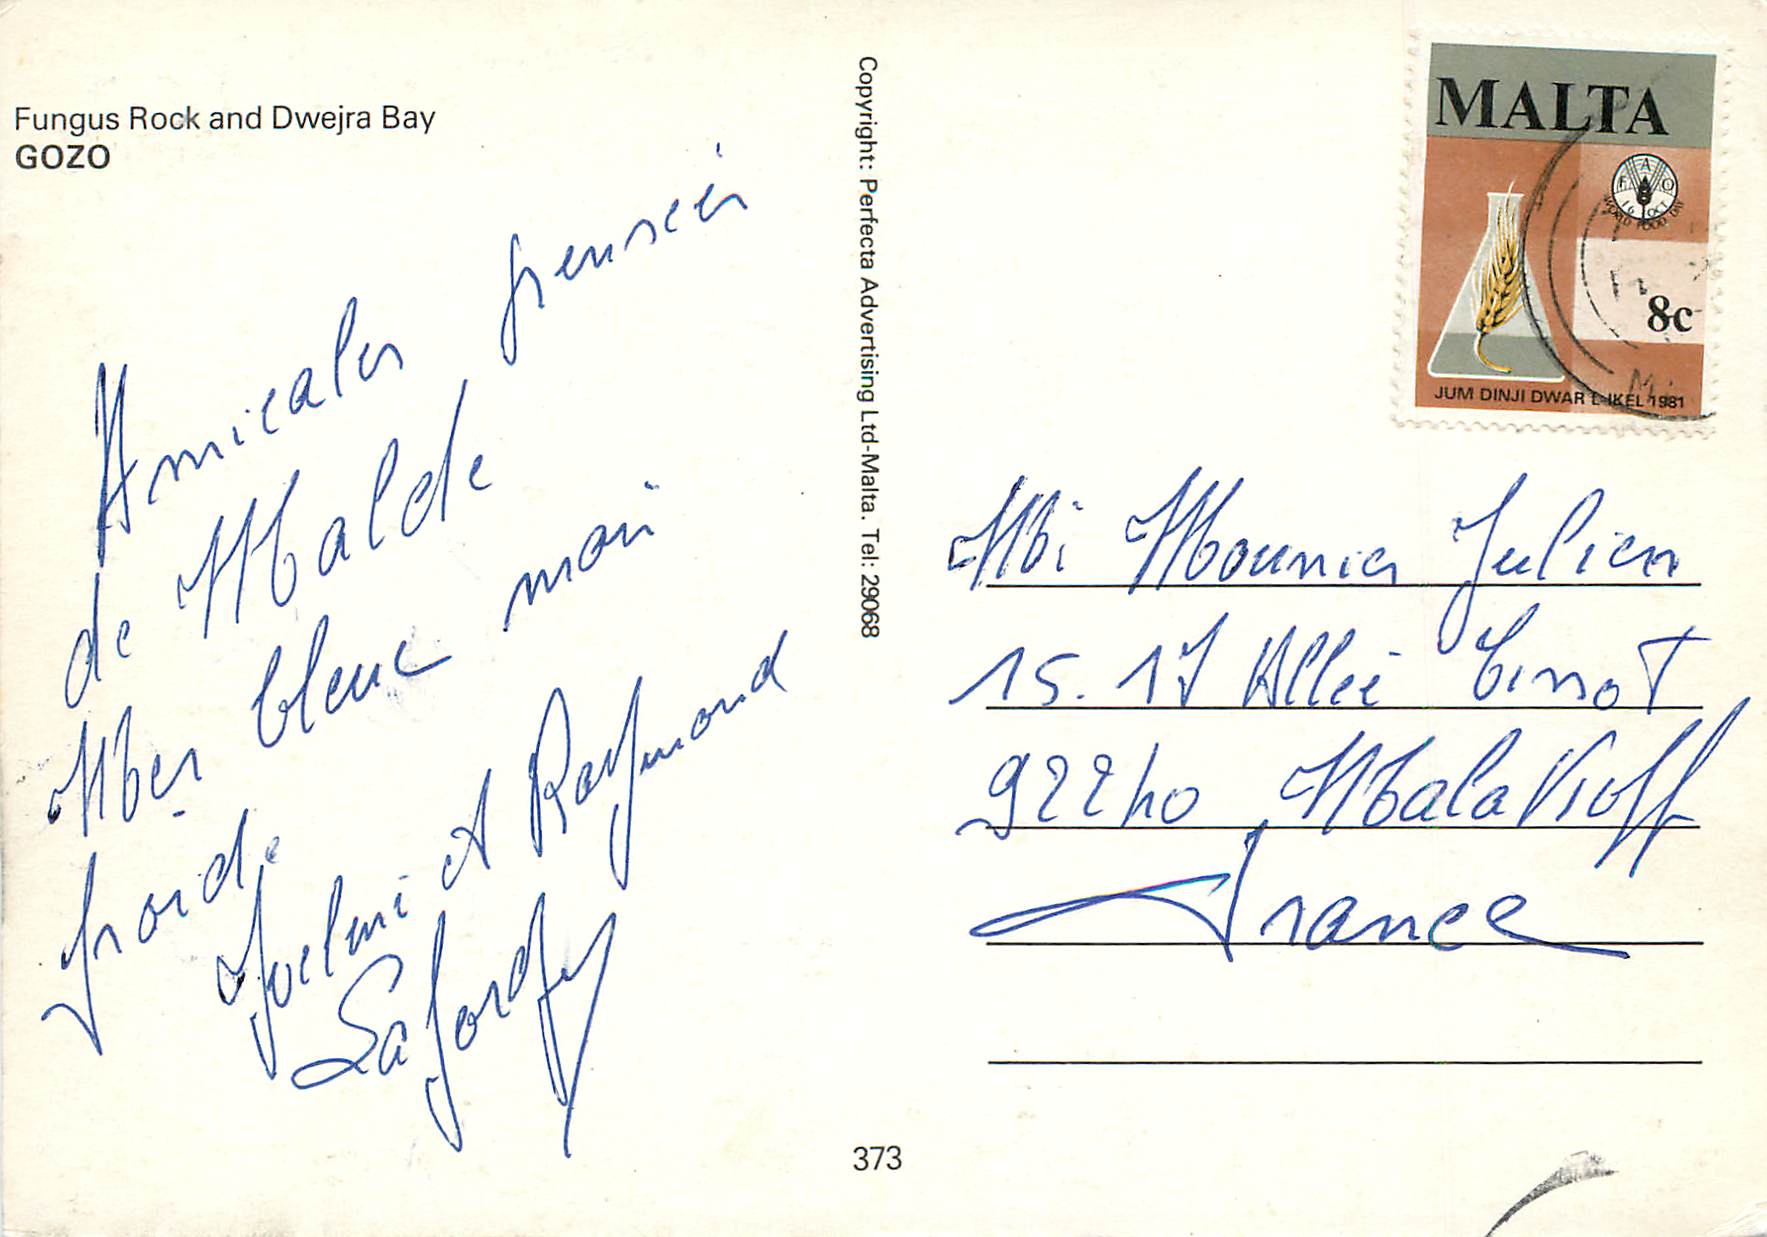 Fungus Rock and Dwejra Bay
GOZO
Amicales pensées
de Malte
Mer bleue mais
froide
et Raymond
Copyright: Perfecta Advertising Ltd-Malta. Tel: 29068
373
MALTA
F A O
16 OCT
WORLD FOOD DAY
8c
JUM DINJI DWAR L-IKEL 1981
Mounier Julien
15.17 Allée
92240 Malakoff
France